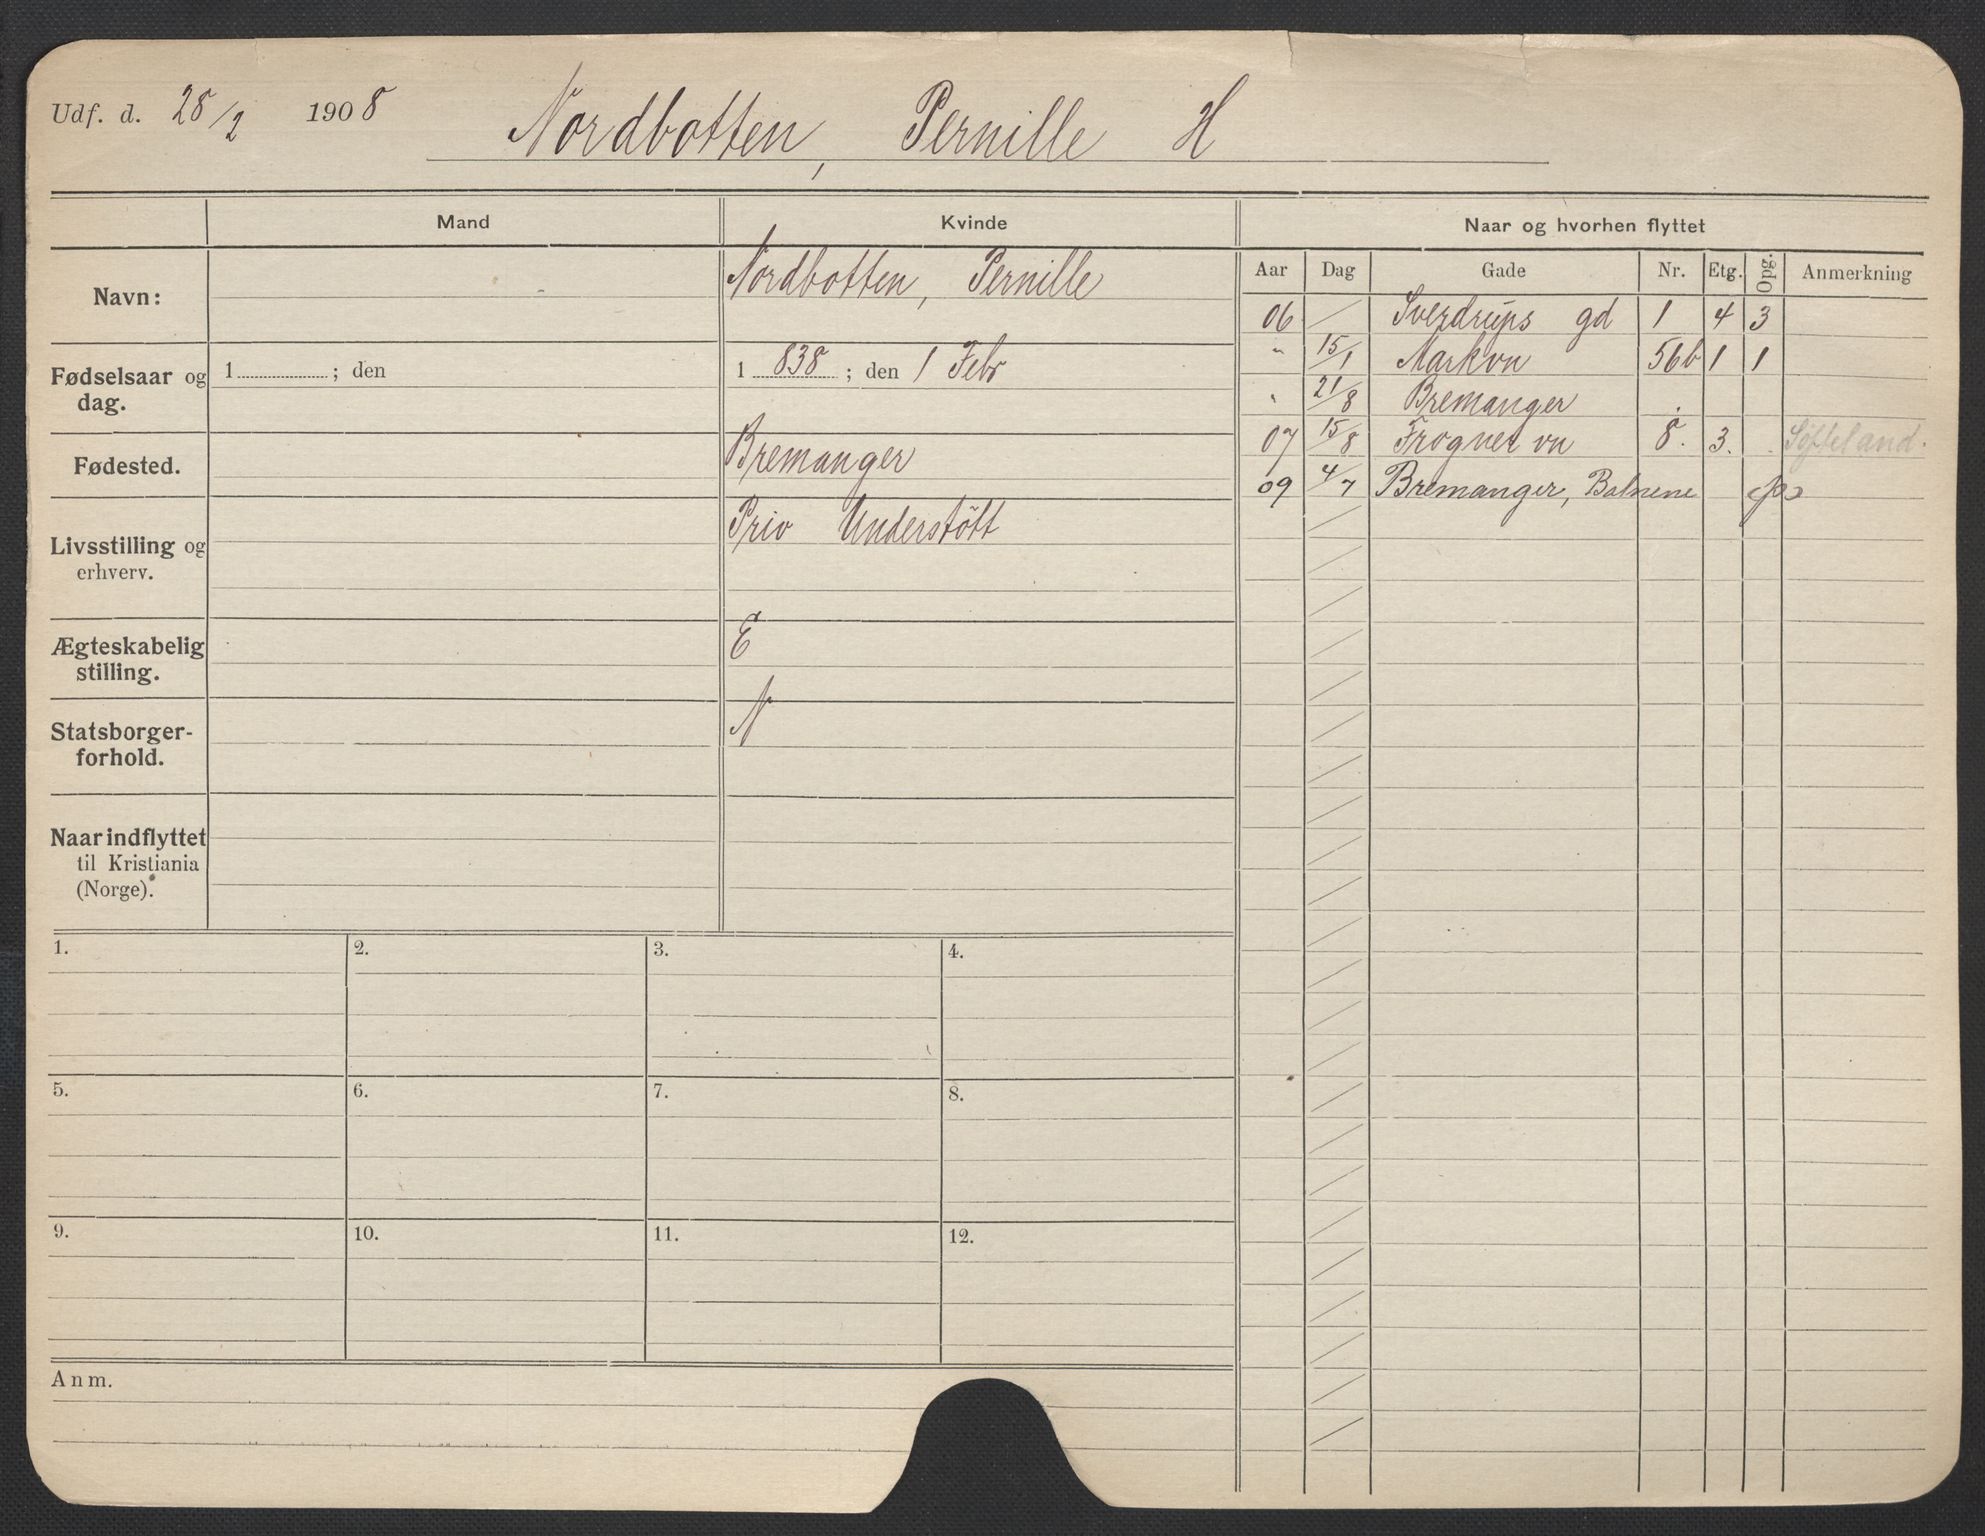 Udf. d. 28/2 1908 Nordbotten, Pernille H
Mand Kvinde Naar og hvorhen flyttet
Aar Dag Gade Nr. Etg. Opg. Anmerkning
Navn: Nordbotten, Pernille
Fødselsaar og dag. 1 ; den 1 838 ; den 1 Febr
Fødested. Bremanger
Livsstilling og erhverv. Priv Understött
Ægteskabelig stilling. E
Statsborgerforhold. N
Naar indflyttet til Kristiania (Norge).
06 Sverdrups gd 1 4 3
" 15/1 Markvn 56b 1 1
" 21/8 Bremanger
07 15/8 Frogner vn 8. 3.
09 4/7 Bremanger,
1. 2. 3. 4.
5. 6. 7. 8.
9. 10. 11. 12.
Anm.